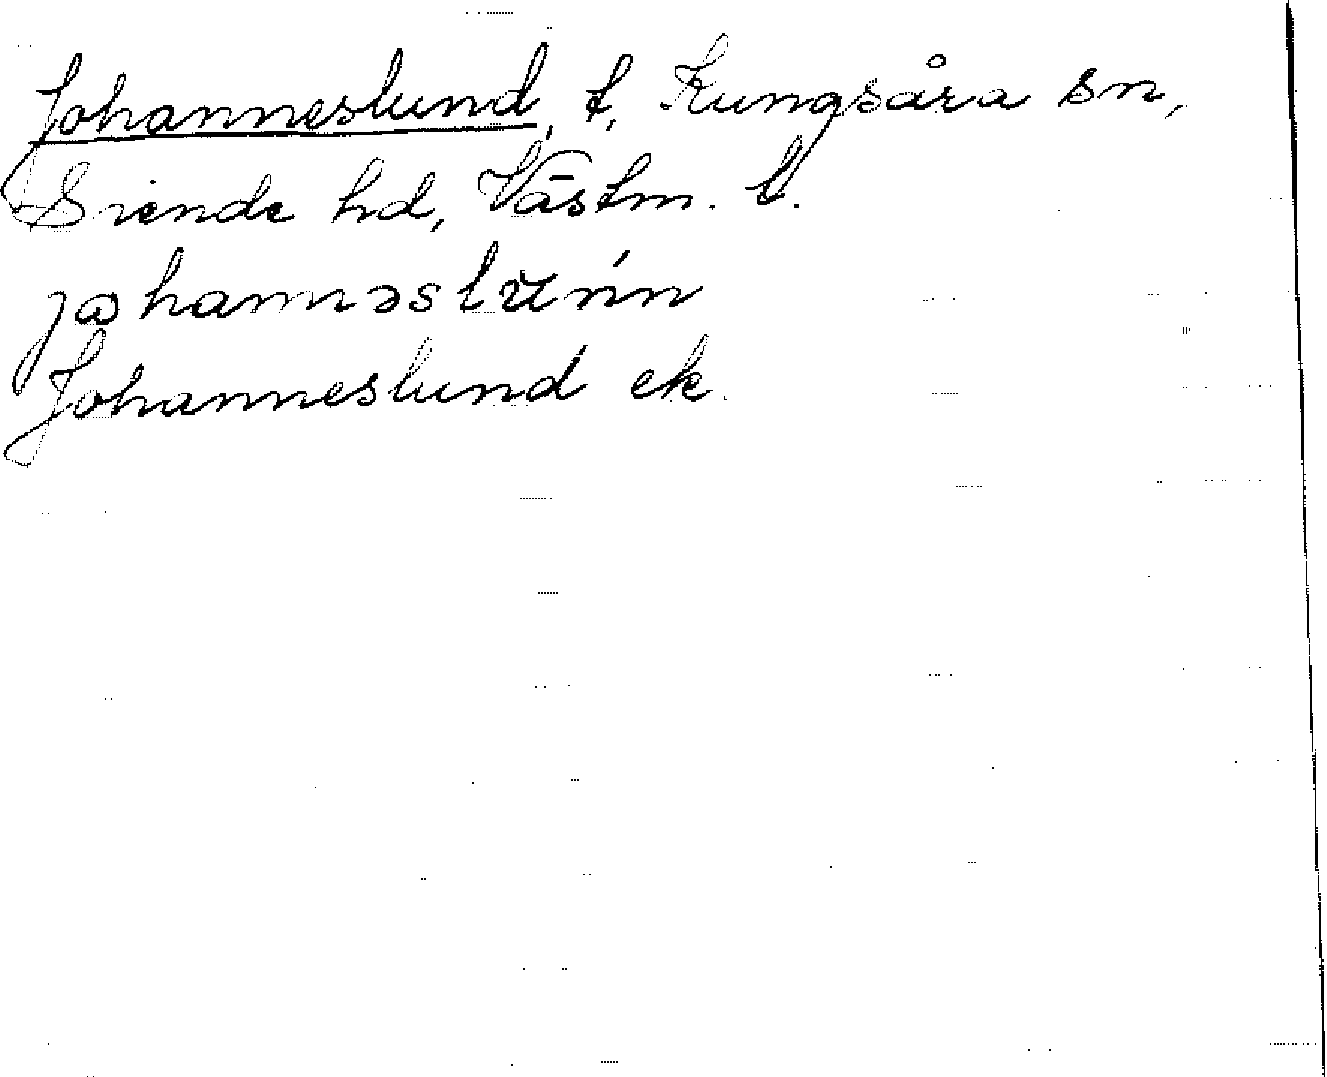 Johanneslund, t, Kungsåra sn,
Siende hd, Västm. l.
Johanneslund ek.